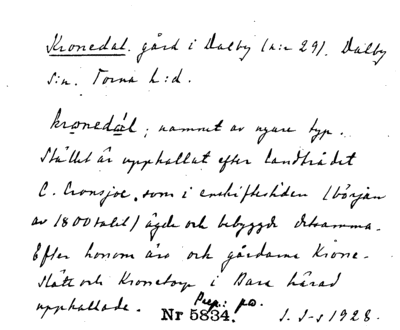 Kronedal. gård i Dalby (n:r 29). Dalby
s:n. Torna h:d.
kro̱nedá̱l; namnet av yngre typ.
Stället är uppkallat efter landtrådet
C. Cronsjoe, som i enskiftestiden (början
av 1800 talet) ägde och bebyggde detsamma.
Efter honom äro ock gårdarna Krone-
slätt och Kronetorp i Bara härad
uppkallade.
Nr 5834. J. S-s 1928.